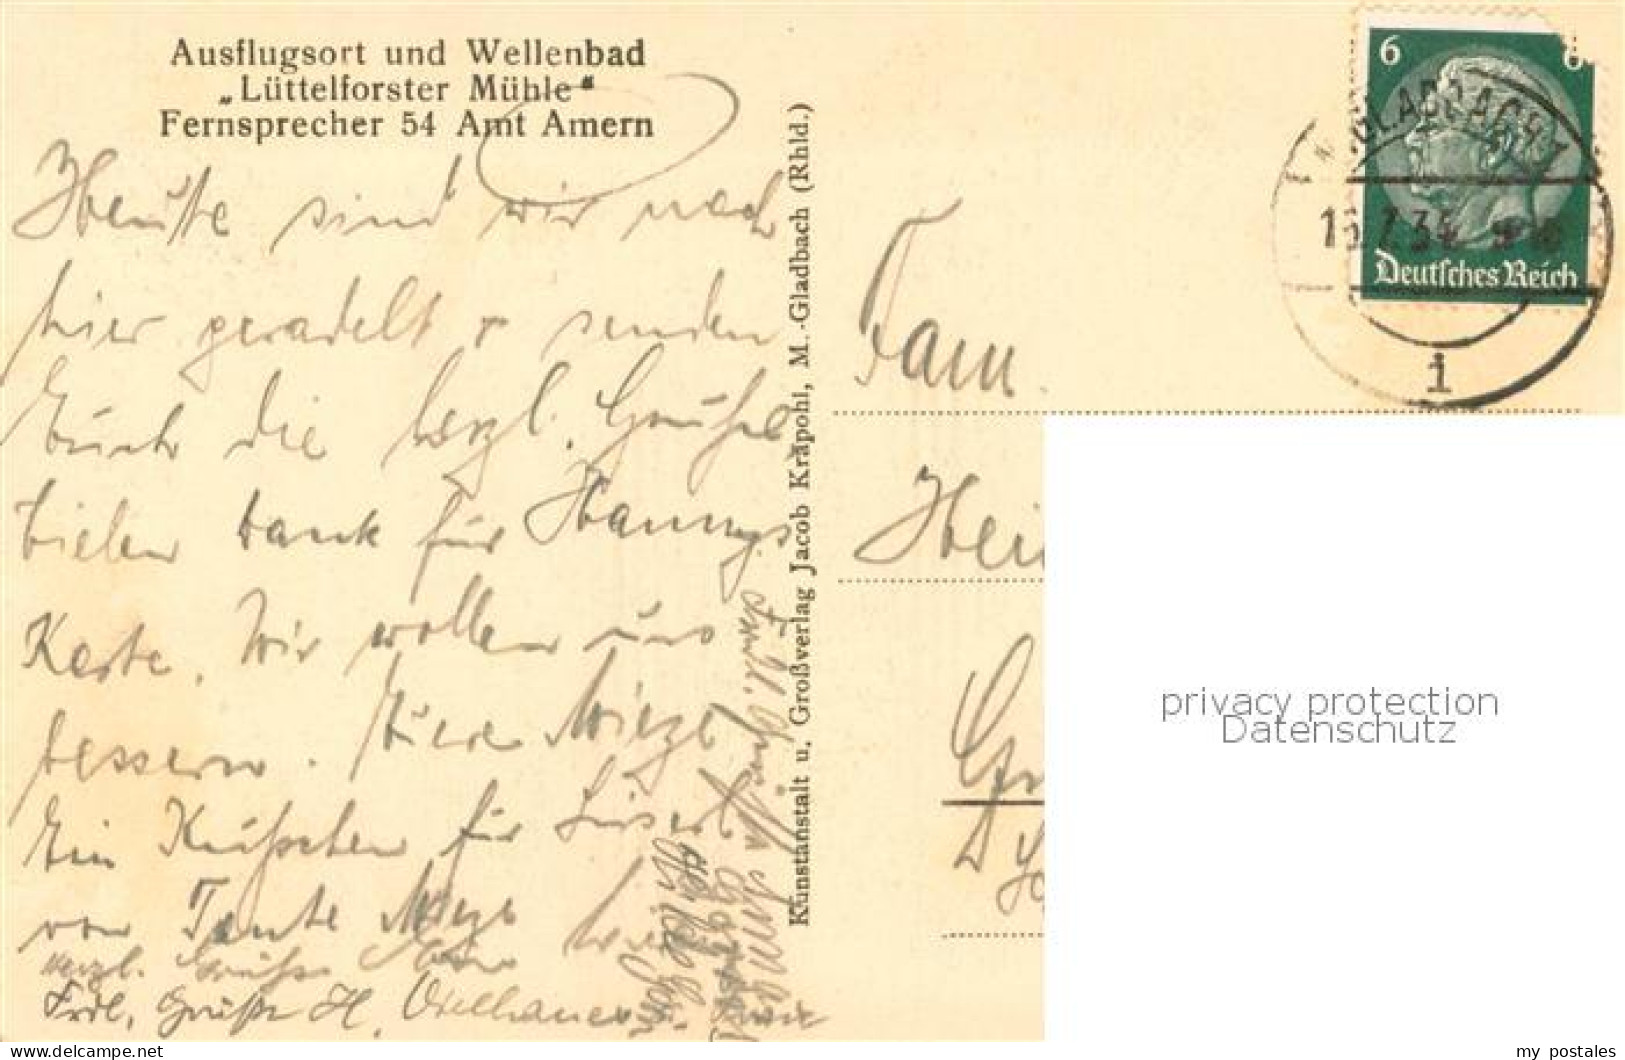 Ausflugsort und Wellenbad
„Lüttelforster Mühle“
Fernsprecher 54 Amt Amern
Heute sind wir nach
hier geradelt & senden
Euch die herzl. Grüße
Vielen Dank für Hannys
Karte. Wir wollen uns
bessern. Eure Miezl
Ein Küßchen für Liserl
von Tante Miezl
Herzl. Grüße
Frdl. Grüße H.
Kunstanstalt u. Großverlag Jacob Kräpohl, M.-Gladbach (Rhld.)
6 6
Deutsches Reich
M.GLADBACH 1
i
Fam.
Hei
privacy protection
Datenschutz
Delcampe.net
my_postales